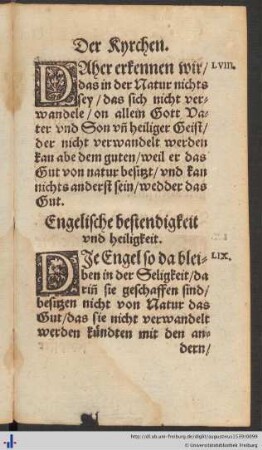 Der Kyrchen.
DAher erkennen wir/ LVIII.
das in der Natur nichts
sey/das sich nicht ver-
wandele/on allein Gott Va-
ter vnd Son vñ heiliger Geist/
der nicht verwandelt werden
kan abe dem guten/weil er das
Gut von natur besitzt/vnd kan
nichts anderst sein/wedder das
Gut.
Engelische bestendigkeit
vnd heiligkeit.
DJe Engel so da blei- LIX.
ben in der Seligkeit/da
riñ sie geschaffen sind/
besitzen nicht von Natur das
Gut/das sie nicht verwandelt
werden kündten mit den an-
dern/
© Universitätsbibliothek Freiburg